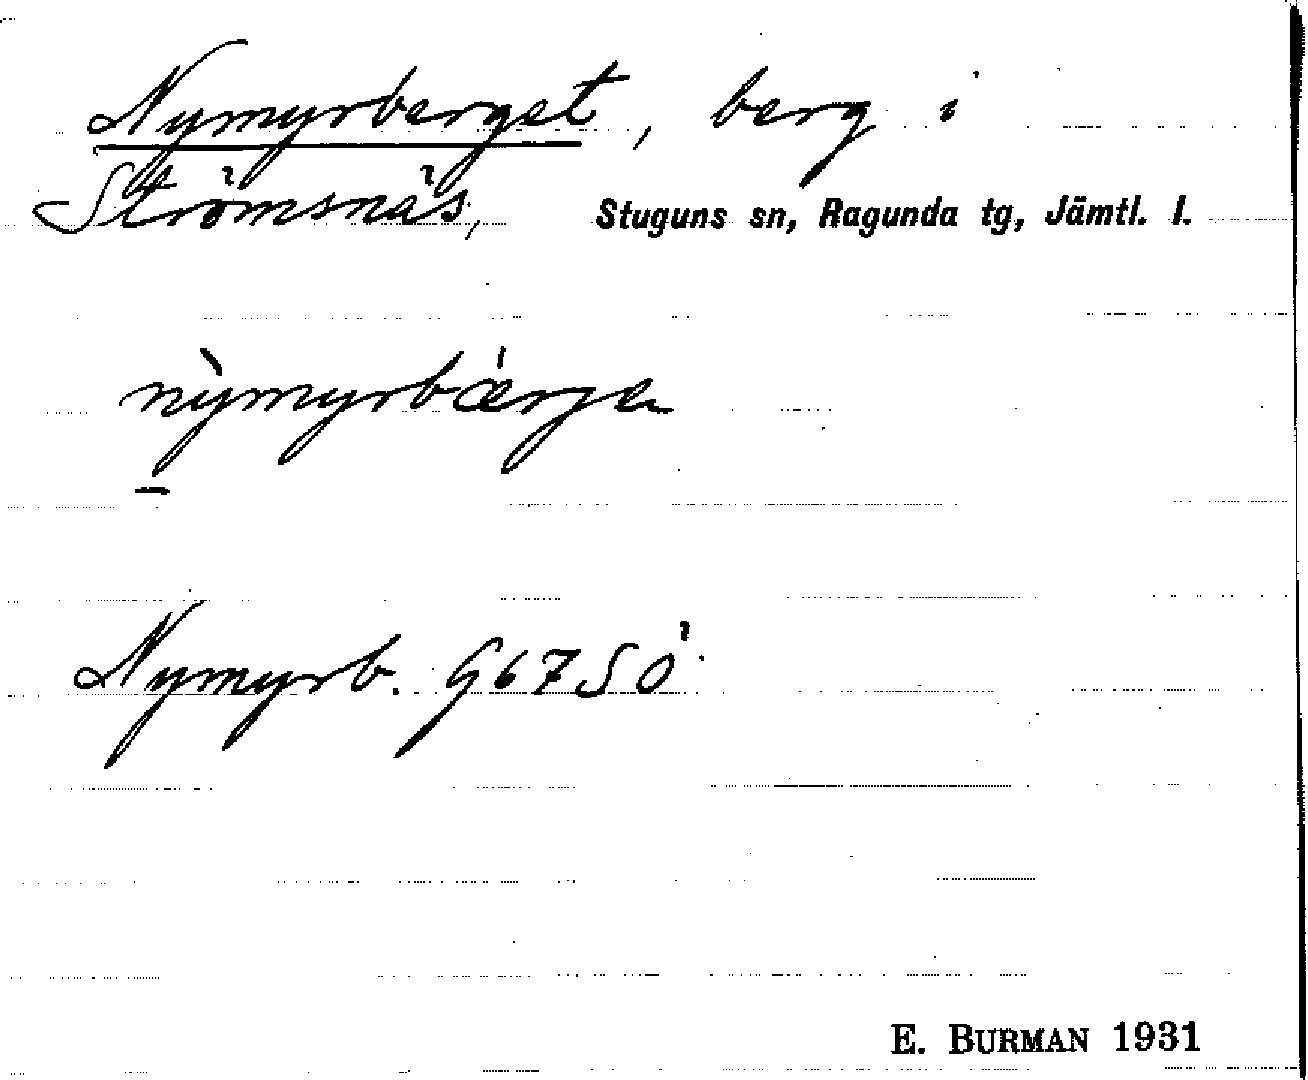 Nymyrberget, berg i
Strömsnäs, Stuguns sn, Ragunda tg, Jämtl. l.
nỳmyrbǽrjen
Nymyrb. G67SÖ
E. BURMAN 1931